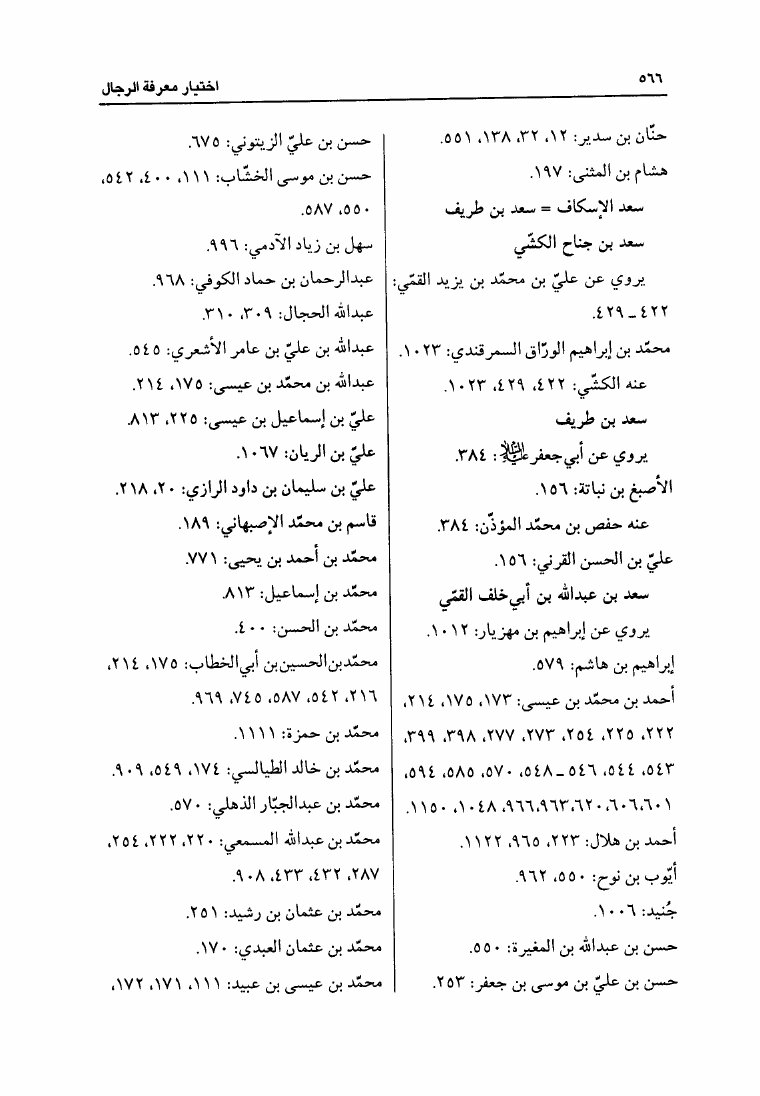 ٥٦٦
اختيار معرفة الرجال
حنّان بن سدير: ١٢، ٣٢، ١٣٨، ٥٥١.
هشام بن المثنى: ١٩٧.
سعد الإسكاف = سعد بن طريف
سعد بن جناح الكشّي
يروي عن عليّ بن محمّد بن يزيد القمّي:
٤٢٢ ـ ٤٢٩.
محمّد بن إبراهيم الورّاق السمرقندي: ١٠٢٣.
عنه الكشّي: ٤٢٢، ٤٢٩، ١٠٢٣.
سعد بن طريف
يروي عن أبي‌جعفر عليه السلام: ٣٨٤.
الأصبغ بن نباتة: ١٥٦.
عنه حفص بن محمّد المؤذّن: ٣٨٤.
عليّ بن الحسن القرني: ١٥٦.
سعد بن عبدالله بن أبي‌خلف القمّي
يروي عن إبراهيم بن مهزيار: ١٠١٢.
إبراهيم بن هاشم: ٥٧٩.
أحمد بن محمّد بن عيسى: ١٧٣، ١٧٥، ٢١٤،
٢٢٢، ٢٢٥، ٢٥٤، ٢٧٣، ٢٧٧، ٣٩٨، ٣٩٩،
٥٤٣، ٥٤٤، ٥٤٦ ـ ٥٤٨، ٥٧٠، ٥٨٥، ٥٩٤،
٦٠١، ٦٠٦، ٦٢٠، ٩٦٣، ٩٦٦، ١٠٤٨، ١١٥٠.
أحمد بن هلال: ٢٢٣، ٩٦٥، ١١٢٢.
أيّوب بن نوح: ٥٥٠، ٩٦٢.
جُنيد: ١٠٠٦.
حسن بن عبدالله بن المغيرة: ٥٥٠.
حسن بن عليّ بن موسى بن جعفر: ٢٥٣.
حسن بن عليّ الزيتوني: ٦٧٥.
حسن بن موسى الخشّاب: ١١١، ٤٠٠، ٥٤٢،
٥٥٠، ٥٨٧.
سهل بن زياد الآدمي: ٩٩٦.
عبدالرحمان بن حماد الكوفي: ٩٦٨.
عبدالله الحجال: ٣٠٩، ٣١٠.
عبدالله بن عليّ بن عامر الأشعري: ٥٤٥.
عبدالله بن محمّد بن عيسى: ١٧٥، ٢١٤.
عليّ بن إسماعيل بن عيسى: ٢٢٥، ٨١٣.
عليّ بن الريان: ١٠٦٧.
عليّ بن سليمان بن داود الرازي: ٢٠، ٢١٨.
قاسم بن محمّد الإصبهاني: ١٨٩.
محمّد بن أحمد بن يحيى: ٧٧١.
محمّد بن إسماعيل: ٨١٣.
محمّد بن الحسن: ٤٠٠.
محمّدبن‌الحسين‌بن أبي‌الخطاب: ١٧٥، ٢١٤،
٢١٦، ٥٤٢، ٥٨٧، ٧٤٥، ٩٦٩.
محمّد بن حمزة: ١١١١.
محمّد بن خالد الطيالسي: ١٧٤، ٥٤٩، ٩٠٩.
محمّد بن عبدالجبّار الذهلي: ٥٧٠.
محمّد بن عبدالله المسمعي: ٢٢٠، ٢٢٢، ٢٥٤،
٢٨٧، ٤٣٢، ٤٣٣، ٩٠٨.
محمّد بن عثمان بن رشيد: ٢٥١.
محمّد بن عثمان العبدي: ١٧٠.
محمّد بن عيسى بن عبيد: ١١١، ١٧١، ١٧٢،